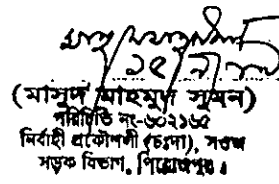 (মাসুদ মাহমুদ সুমন)
পরিচিতি নং-৬০২১৬৫
নির্বাহী প্রকৌশলী (চঃদাঃ), সওজ
সড়ক বিভাগ, পিরোজপুর।